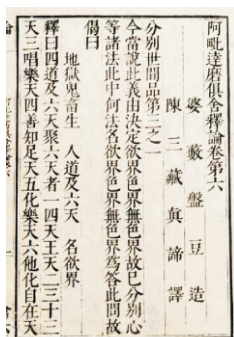 阿毗達磨俱舍釋論卷第六
婆藪盤豆造
陳三藏真諦譯
分別世間品第三之一
今當說此義由決定欲界色界無色界故已分別心
等諸法此中何法名欲界色界無色界為答此問故
偈曰
地獄鬼畜生　人道及六天　名欲界
釋曰四道及六天聚六天者一四天王天二三十三
天三唱樂天四善知足天五化樂天六他化自在天